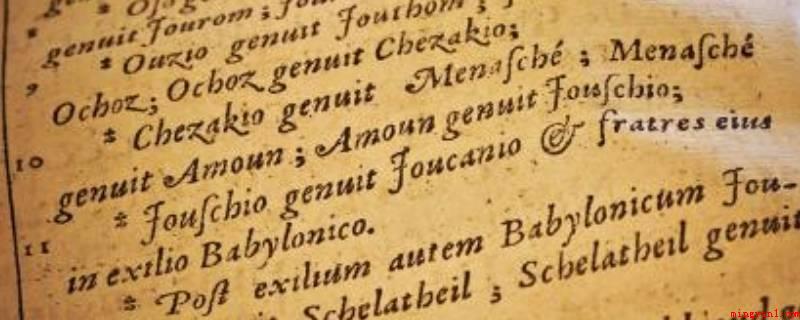 genuit Jourom; Jou
9 * Ouzio genuit Jouthom;
Ochoz; Ochoz genuit Chezakio;
10 * Chezakio genuit Menaſché; Menaſché
genuit Amoun; Amoun genuit Jouſchio;
11 * Jouſchio genuit Joucanio & fratres eius
in exilio Babylonico.
* Poſt exilium autem Babylonicum Jou-
Schelatheil; Schelatheil genuit